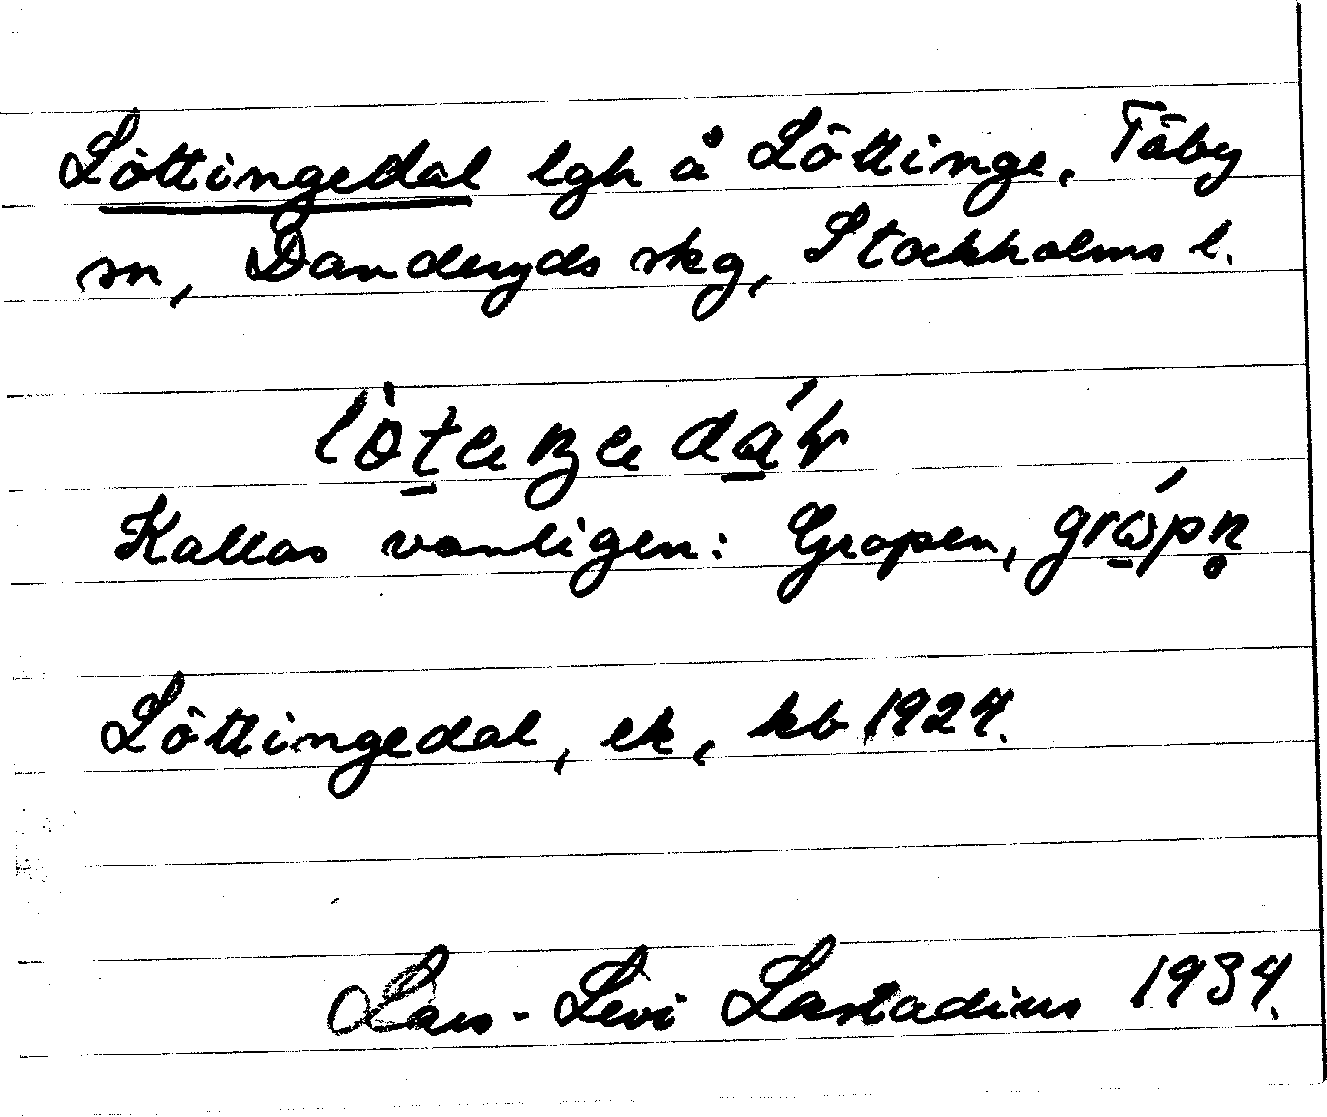 Löttingedal lgh å Löttinge, Täby
sn, Danderyds skg, Stockholms l.
Kallas vanligen: Gropen,
Löttingedal, ek, kb 1924.
Lars-Levi Læstadius 1934.